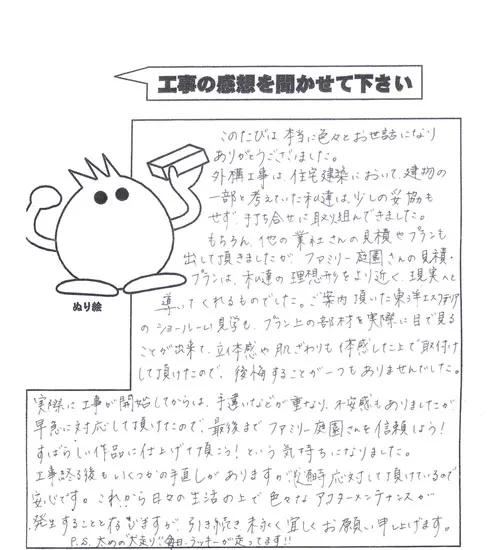 工事の感想を聞かせて下さい
このたびは本当に色々とお世話になり
ありがとうございました。
外構工事は、住宅建築において、建物の
一部と考えていた私達は、少しの妥協も
せず、打ち合せに取り組んできました。
もちろん、他の業社さんの見積やプランも
出して頂きましたが、ファミリー庭園さんの見積・
プランは、私達の理想形をより近く、現実へと
導いてくれるものでした。ご案内頂いた東洋エクステリア
のショールーム見学も、プラン上の部材を実際に目で見る
ことが出来て、立体感や肌ざわりも体感した上で取付け
して頂けたので、後悔することが一つもありませんでした。
ぬり絵
実際に工事が開始してからは、手違いなどが重なり、不安感もありましたが
早急に対応して頂けたので、最後までファミリー庭園さんを信頼しよう!
すばらしい作品に仕上げて頂こう!という気持ちになりました。
工事終了後もいくつかの手直しがありますが応対して頂けているので
安心です。これから日々の生活の上で色々なアフターメンテナンスが
発生することと存じますが、引き続き末永く宜しくお願い申し上げます。
P.S. 太めの"犬走り"毎日、ラッキーが走ってます!!